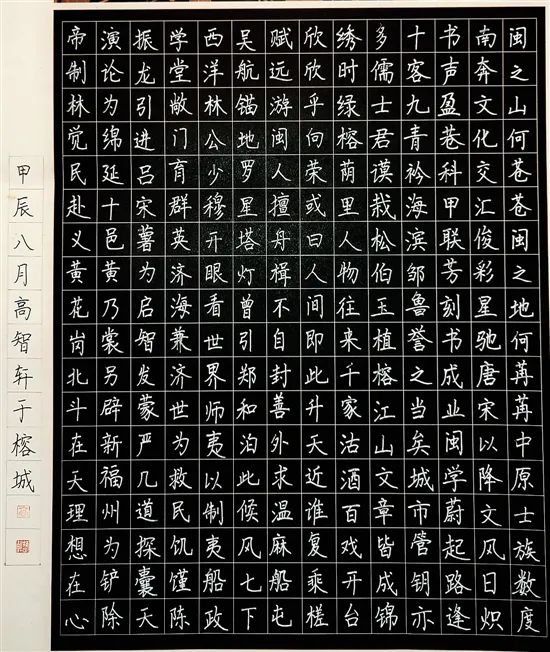 闽之山何苍苍闽之地何苒苒中原士族数度
南奔文化交汇俊彩星驰唐宋以降文风日炽
书声盈巷科甲联芳刻书成业闽学蔚起路逢
十客九青衿海滨邹鲁誉之当矣城市管钥亦
多儒士君谟栽松伯玉植榕江山文章皆成锦
绣时绿榕荫里人物往来千家沽酒百戏开台
欣欣乎向荣或曰人间即此升天近谁复乘槎
赋远游闽人擅舟楫不自封善外求温麻船屯
吴航锚地罗星塔灯曾引郑和泊此候风七下
西洋林公少穆开眼看世界师夷以制夷船政
学堂敞门育群英济海兼济世为救民饥馑陈
振龙引进吕宋薯为启智发蒙严几道探囊天
演论为绵延十邑黄乃裳另辟新福州为铲除
帝制林觉民赴义黄花岗北斗在天理想在心
甲辰八月高智轩于榕城